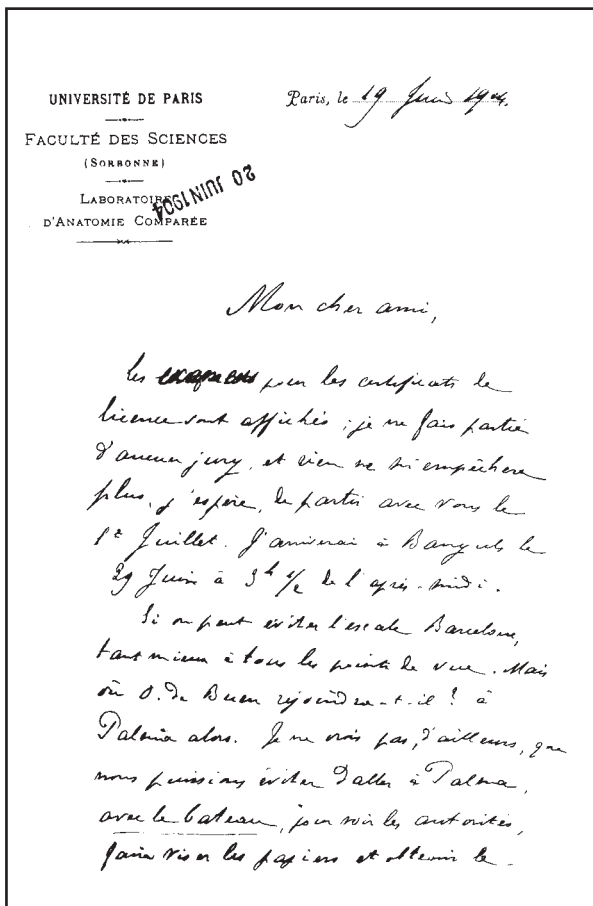 UNIVERSITÉ DE PARIS
FACULTÉ DES SCIENCES
(SORBONNE)
LABORATOIRE
D'ANATOMIE COMPARÉE
20 JUIN 1904
Paris, le 19 Juin 1904.
Mon cher ami,
Les examens pour les certificats de
licence sont affichés ; je ne fais partie
d'aucun jury, et rien ne m'empêchera
plus, j'espère, de partir avec vous le
1er Juillet. J'arriverai à Banyuls le
29 Juin à 3h 1/2 de l'après-midi.
Si on peut éviter l'escale Barcelone,
tant mieux à tous les points de vue. Mais
où O. de Buen rejoindra-t-il ? à
Palma alors. Je ne crois pas, d'ailleurs, que
nous puissions éviter d'aller à Palma,
avec le bateau, pour voir les autorités,
faire viser les papiers et obtenir le